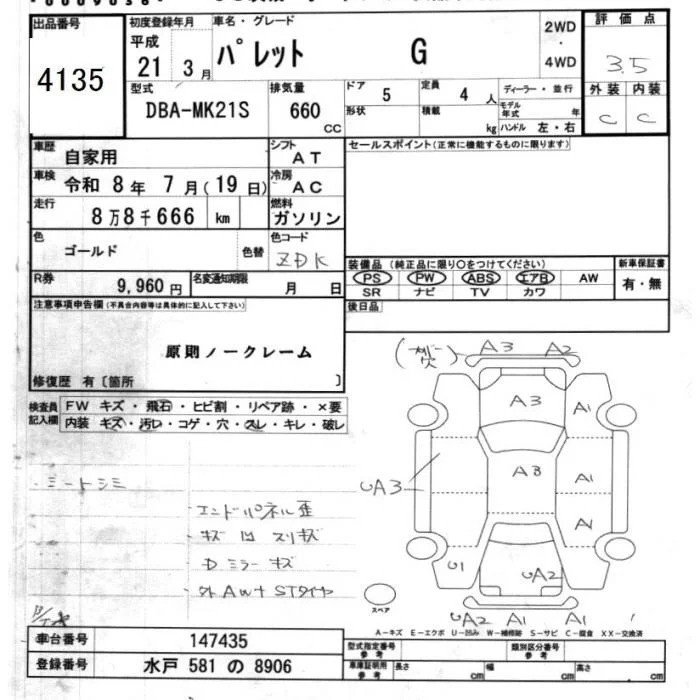 出品番号
4135
初度登録年月
平成
21 3月
車名・グレード
パレット G
2WD
・
4WD
評価点
3.5
外装 内装
C C
型式
DBA-MK21S
排気量
660
CC
ドア
5
定員
4 人
ディーラー・並行
形状
積載
kg
モデル年式 年
ハンドル 左・右
車歴
自家用
シフト
AT
セールスポイント(正常に機能するものに限ります)
車検
令和 8年 7月(19日)
冷房
AC
走行
8万8千666 km
燃料
ガソリン
色
ゴールド
色替
色コード
ZDK
装備品 (純正品に限り○をつけてください)
新車保証書
PS PW ABS エアB AW
有・無
SR ナビ TV カワ
R券
9,960円
名変通知期限
月 日
後日品
注意事項申告欄(不具合内容等は具体的に記入して下さい)
原則ノークレーム
修復歴 有〔箇所 〕
検査員
記入欄
FW キズ・飛石・ヒビ割・リペア跡・×要
内装 キズ・汚レ・コゲ・穴・スレ・キレ・破レ
A3 A2
A3
A1
UA3
AB
A1
A1
U1
UA2
UA2 A1 A1
スペア
・シートシミ
エンドパネル歪
キズ 凹 スリキズ
Dミラーキズ
外AW+STタイヤ
A-キズ E-エクボ U-凹み W-補修跡 S-サビ C-腐食 XX-交換済
車台番号
147435
登録番号
水戸 581 の 8906
型式指定番号
参考
類別区分番号
参考
車庫証明用
参考
長さ cm
幅 cm
高さ cm